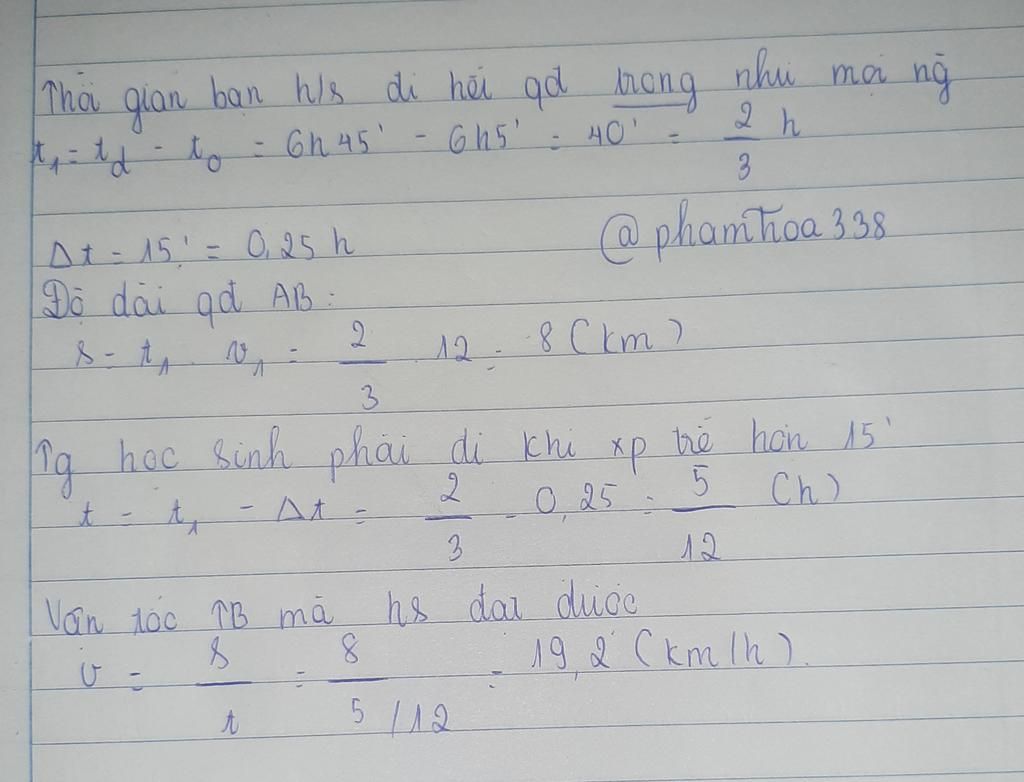 Thời gian bạn h/s đi hết qđ trong như mọi ng̃
t₁ = t_d - t₀ = 6h45' - 6h5' = 40' = 2/3 h
Δt = 15' = 0,25 h
@phamhoa338
Độ dài qđ AB:
s = t₁ . v₁ = 2/3 . 12 = 8 (km)
Tg học sinh phải đi khi xp trễ hơn 15'
t = t₁ - Δt = 2/3 - 0,25 = 5/12 (h)
Vận tốc TB mà hs đạt được
v = s/t = 8/5/12 = 19,2 (km/h).